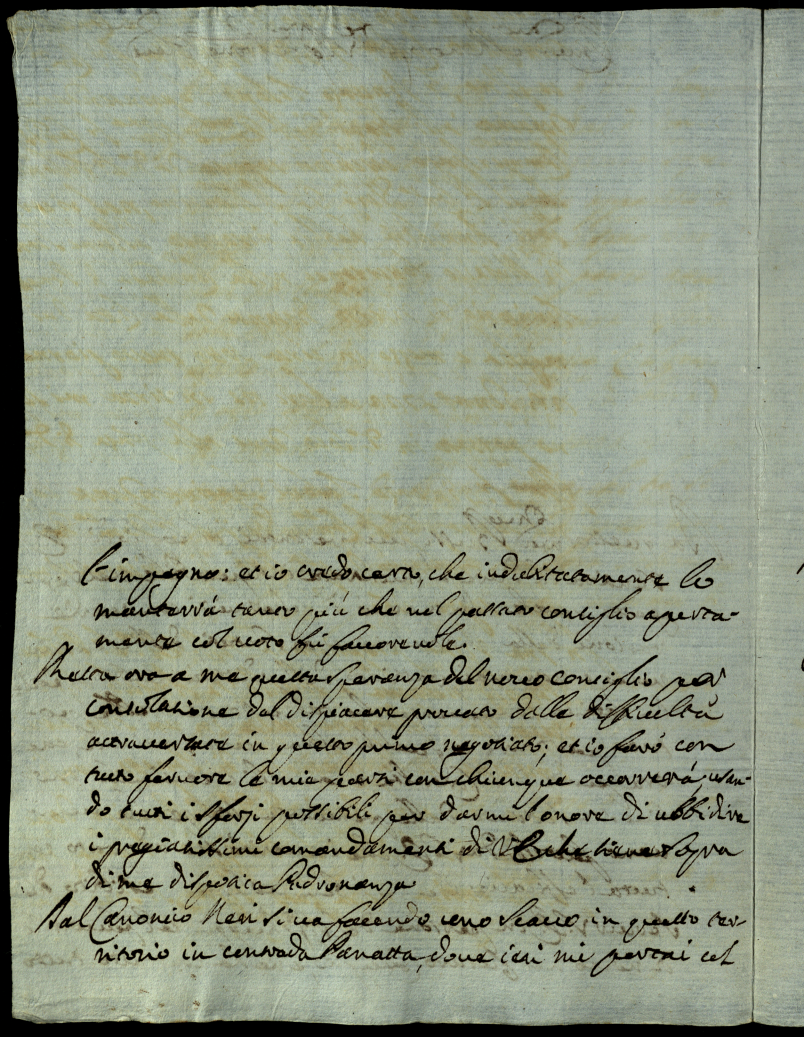 l'impegno: et io credo certo, che indubitatamente lo
manterrà tanto più che nel passato consiglio aperta-
mente col voto fù favorevole.
Resta ora a me questa speranza del nuovo consiglio per
consolatione del dispiacere provato dalle difficultà
attraversate in questo primo negotiato; et io farò con
tutto fervore le mie parti con chiunque occorrerà, usan-
do tutti i sforzi possibili per darmi l'onore di ubbidire
i pregiatissimi comandamenti di che tiene sopra
di me dispotica Padronanza
Dal Canonico Neri si va facendo uno scavo in questo ter-
ritorio in contrada Panatta, dove ieri mi portai col